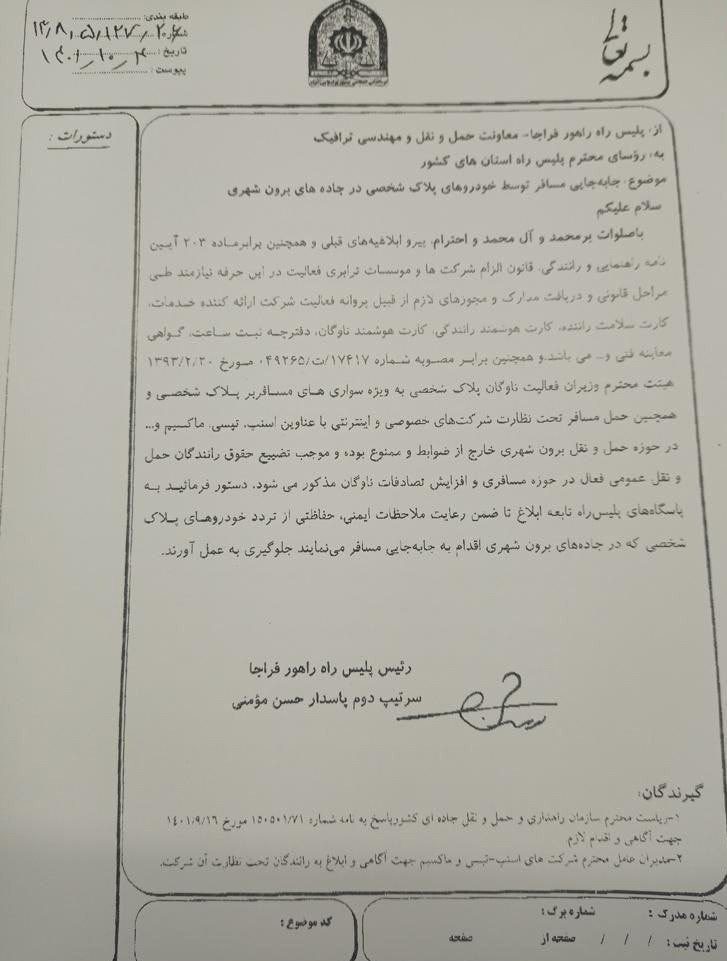 بسمه تعالی
طبقه بندی:
شماره:
تاریخ: ۱۴۰۱/۱۰/۴
پیوست:
دستورات:
از: پلیس راه راهور فراجا- معاونت حمل و نقل و مهندسی ترافیک
به: رؤسای محترم پلیس راه استان های کشور
موضوع: جابه‌جایی مسافر توسط خودروهای پلاک شخصی در جاده های برون شهری
سلام علیکم
باصلوات برمحمد و آل محمد و احترام، پیرو ابلاغیه‌های قبلی و همچنین برابرماده ۲۰۳ آیین
نامه راهنمایی و رانندگی، قانون الزام شرکت ها و موسسات ترابری فعالیت در این حرفه نیازمند طی
مراحل قانونی و دریافت مدارک و مجوزهای لازم از قبیل پروانه فعالیت شرکت ارائه کننده خدمات،
کارت سلامت راننده، کارت هوشمند رانندگی، کارت هوشمند ناوگان، دفترچه ثبت ساعت، گواهی
معاینه فنی و... می باشد.و همچنین برابر مصوبه شماره ۱۷۴۱۷/ت/۰۴۹۲۶۵ مورخ ۱۳۹۳/۲/۲۰
هیئت محترم وزیران فعالیت ناوگان پلاک شخصی به ویژه سواری های مسافربر پلاک شخصی و
همچنین حمل مسافر تحت نظارت شرکت‌های خصوصی و اینترنتی با عناوین اسنپ، تپسی، ماکسیم و...
در حوزه حمل و نقل برون شهری خارج از ضوابط و ممنوع بوده و موجب تضییع حقوق رانندگان حمل
و نقل عمومی فعال در حوزه مسافری و افزایش تصادفات ناوگان مذکور می شود. دستور فرمائید به
پاسگاه‌های پلیس‌راه تابعه ابلاغ تا ضمن رعایت ملاحظات ایمنی، حفاظتی از تردد خودروهای پلاک
شخصی که در جاده‌های برون شهری اقدام به جابه‌جایی مسافر می‌نمایند جلوگیری به عمل آورند.
رئیس پلیس راه راهور فراجا
سرتیپ دوم پاسدار حسن مؤمنی
گیرندگان:
۱-ریاست محترم سازمان راهداری و حمل و نقل جاده ای کشورپاسخ به نامه شماره ۱۵۰۵۰۱/۷۱ مورخ ۱۴۰۱/۹/۱۶
جهت آگاهی و اقدام لازم
۲-مدیران عامل محترم شرکت های اسنپ-تپسی و ماکسیم جهت آگاهی و ابلاغ به رانندگان تحت نظارت آن شرکت.
شماره مدرک : شماره برگ :
تاریخ ثبت : / / / صفحه از صفحه
کد موضوع :